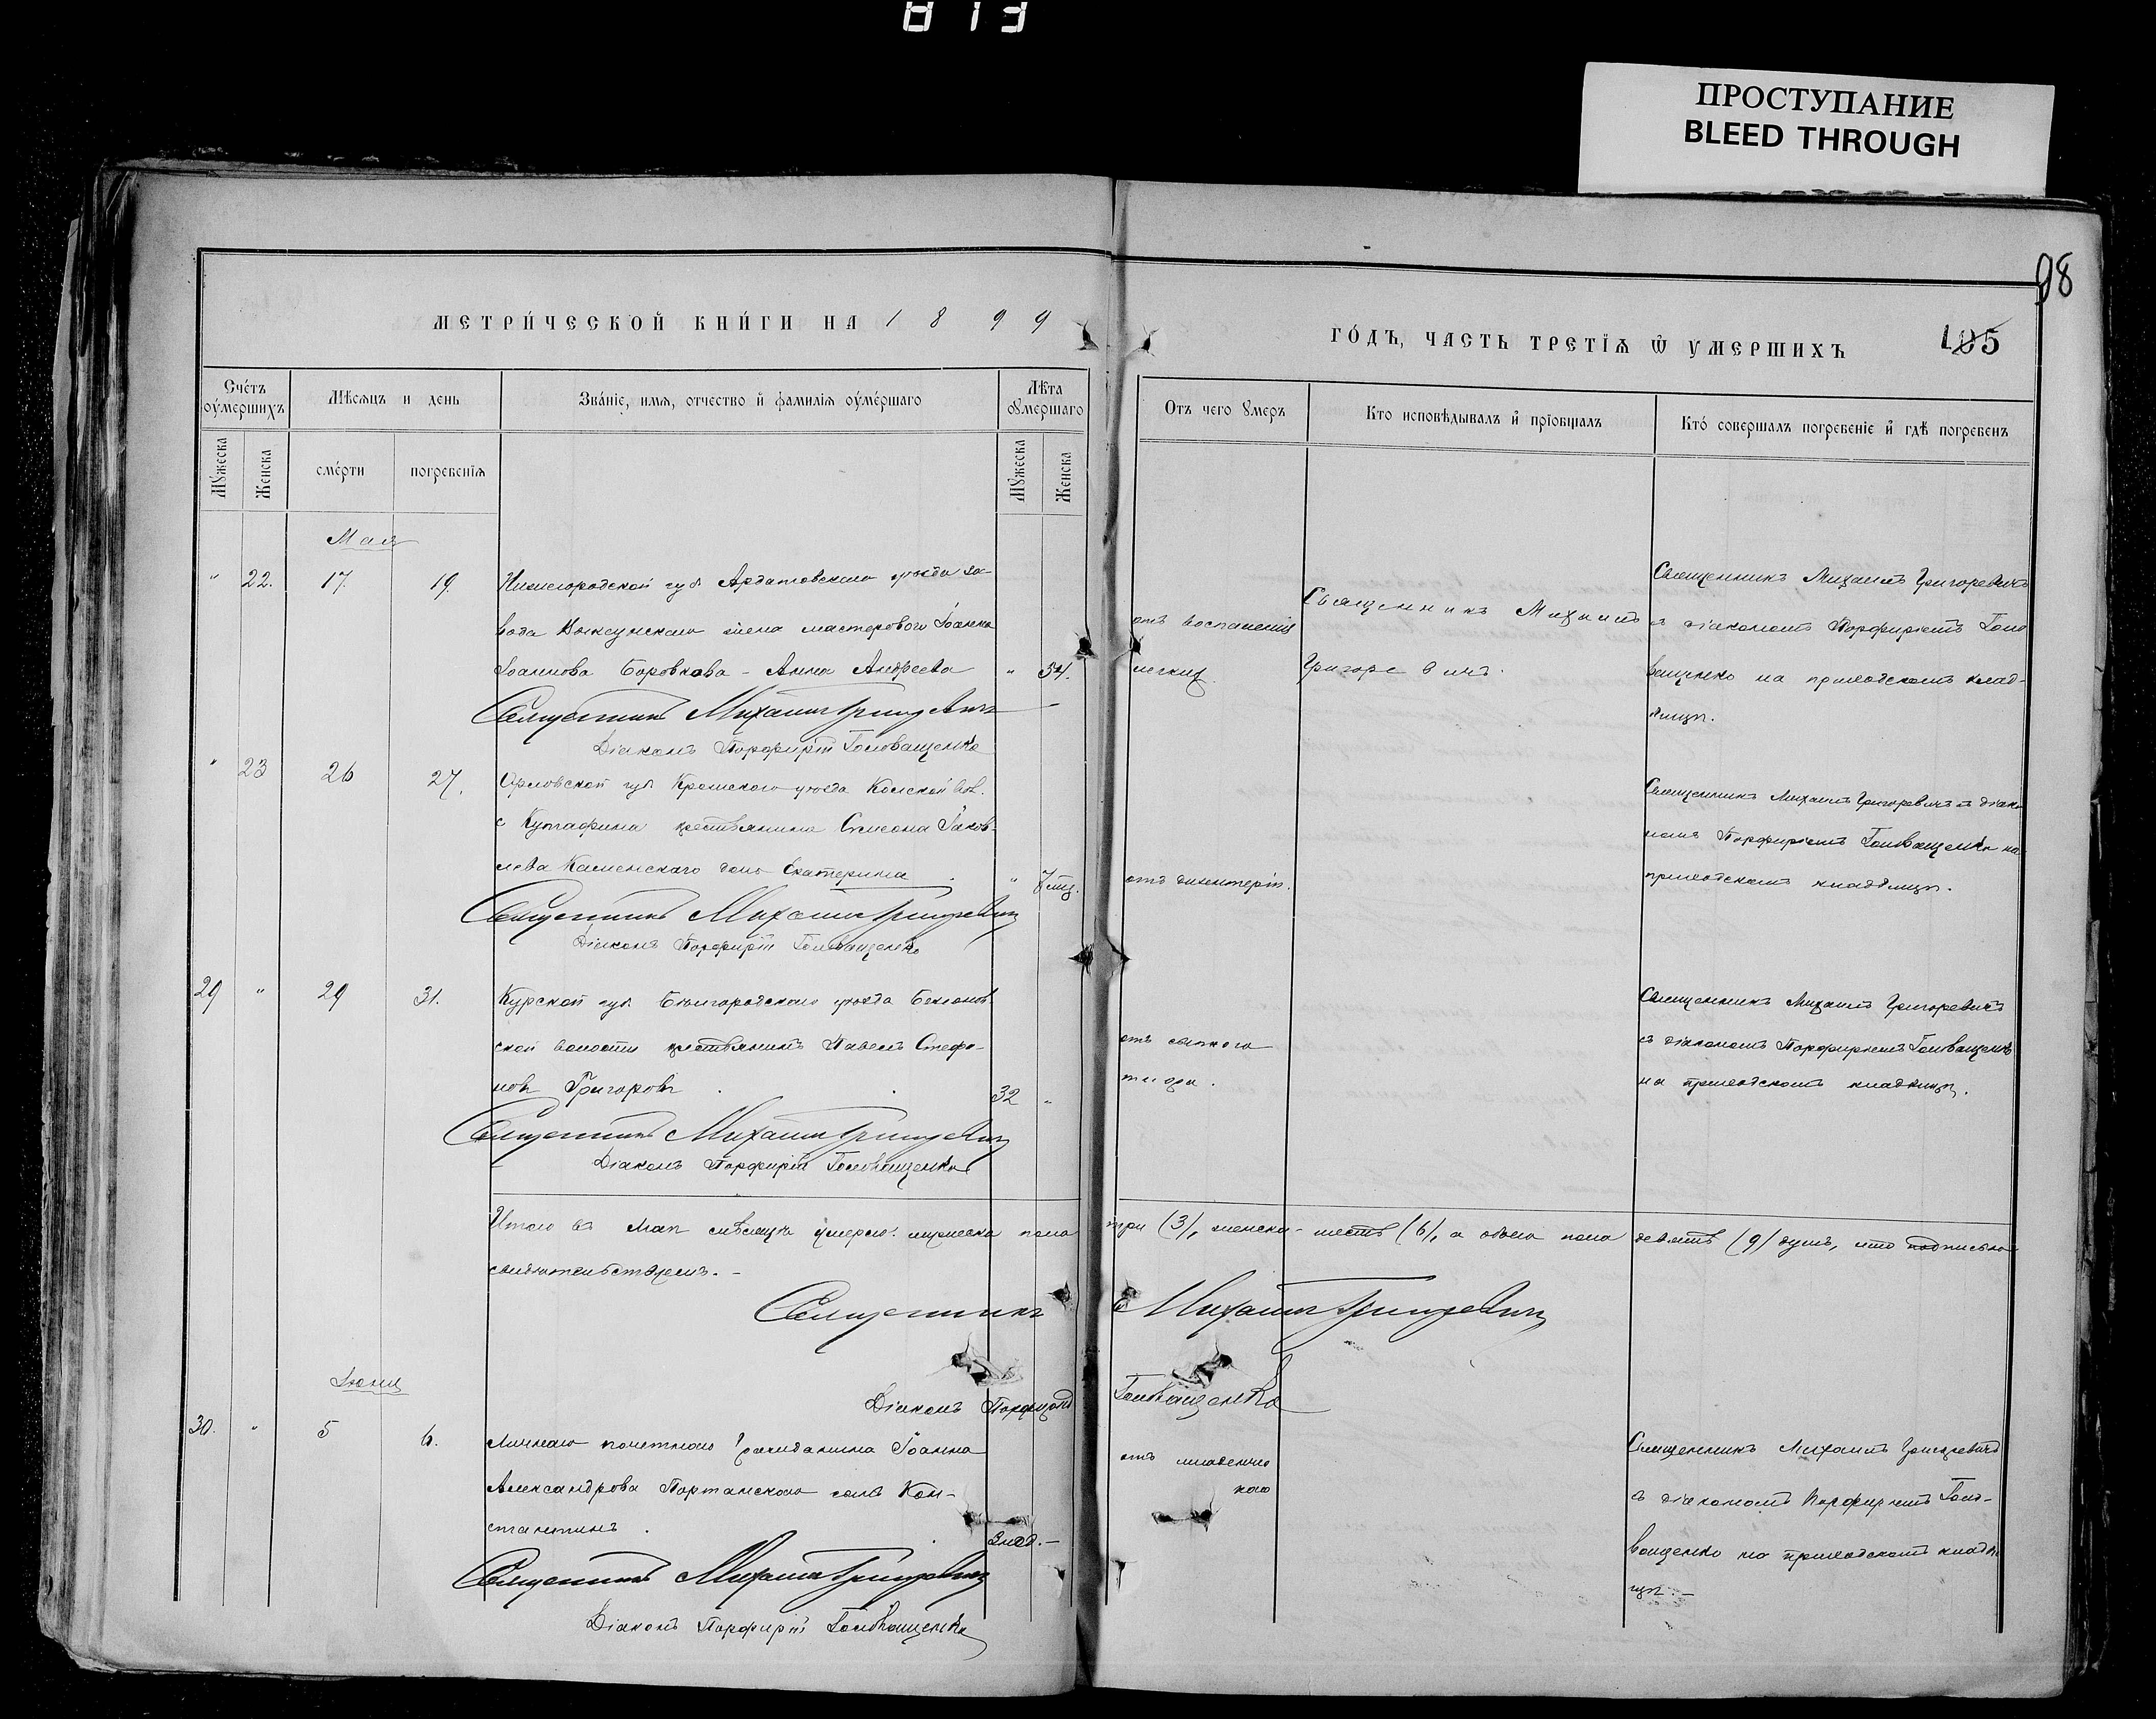 813
ПРОСТУПАНИЕ
BLEED THROUGH
98
МЕТРИ́ЧЕСКОЙ КНИ́ГИ НА 1899
ГО́ДЪ, ЧАСТЬ ТРЕТІѦ Ѡ УМЕРШИХЪ
105
Счётъ оумершихъ
Мѣсяцъ и день
Зва́ніе, имя, отчество и фамилія оуме́ршаго
Лѣта оумершаго
Отъ чего умеръ
Кто исповѣдывалъ и пріобщалъ
Кто́ совершалъ погребеніе и гдѣ погребенъ
Мужеска
Женска
сме́рти
погребенія
Мужеска
Женска
Мая
" 22. 17. 19.
Нижегородской губ Ардатовскаго уѣзда за-
вода Выксунскаго жена мастероваго Іоанна
Іоаннова Боровкова - Анна Андреева " 54.
Священникъ Михаилъ Григоревичъ
Діаконъ Порфирій Головащенко
отъ воспаленія
легкихъ
Священникъ Михаилъ
Григоревичъ.
Священникъ Михаилъ Григоревичъ
съ діакономъ Порфиріемъ Голо
ващенко на приходскомъ клад-
бищѣ.
" 23 26 27.
Орловской губ Кромскаго уѣзда
с крестьянина Симеона Іаков-
лева Каменскаго дочь Екатерина "
Священникъ Михаилъ Григоревичъ
Діаконъ Порфирій Головащенко
отъ дизентеріи.
Священникъ Михаилъ Григоревичъ съ діако-
номъ Порфиріемъ Головащенко на
приходскомъ кладбищѣ.
29 " 29 31.
Курской губ Бѣлгородскаго уѣзда
ской волости крестьянинъ Павелъ Стефа-
новъ Григоровъ 32 "
Священникъ Михаилъ Григоревичъ
Діаконъ Порфирій Головащенко
отъ сыпного
тифа.
Священникъ Михаилъ Григоревичъ
съ діакономъ Порфиріемъ Головащенко
на приходскомъ кладбищѣ.
Итого въ Маѣ мѣсяцѣ умерло: мужеска пола три (3), женска - шесть (6), а обоего пола девять (9) душъ, что подписью
свидѣтельствуемъ. -
Священникъ Михаилъ Григоревичъ
Діаконъ Порфирій Головащенко
Іюнь
30. " 5 6.
Личнаго почетнаго гражданина Іоанна
Александрова Портанскаго сынъ Кон-
стантинъ. 3 нед. -
Священникъ Михаилъ Григоревичъ
Діаконъ Порфирій Головащенко
отъ младенче
скаго
Священникъ Михаилъ Григоревичъ
съ діакономъ Порфиріемъ Голо-
ващенко на приходскомъ кладби
щѣ. -